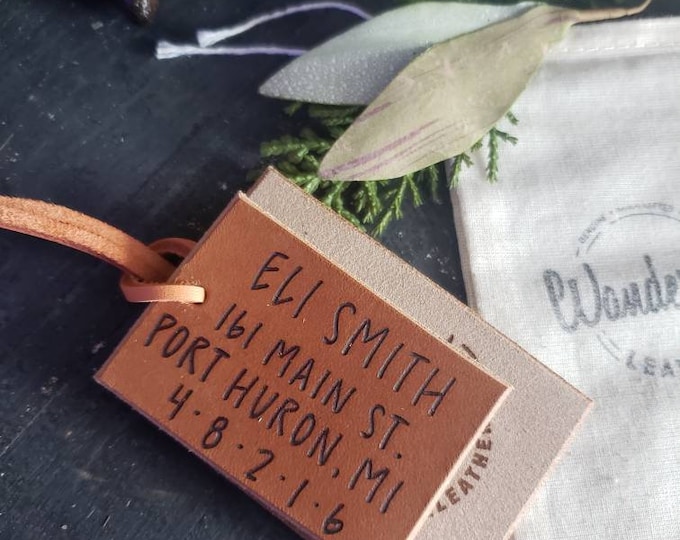 ELI SMITH
161 MAIN ST.
PORT HURON, MI
4·8·2·1·6
LEATHER
GENUINE
Wande
LEAT